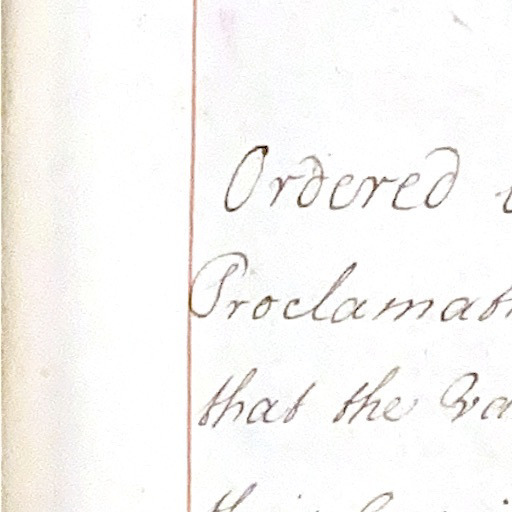 Ordered
Proclamat
that the Va